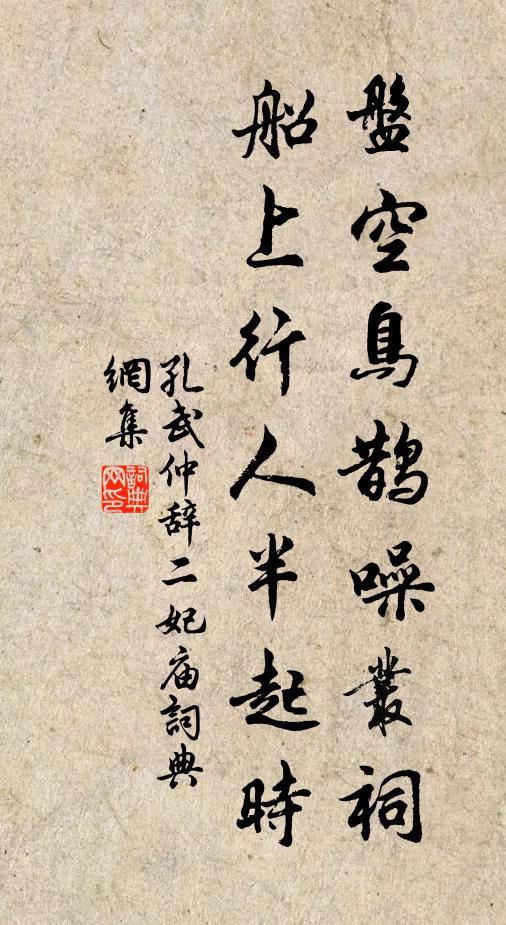 盤空鳥鵲噪叢祠
船上行人半起時
孔武仲辞二妃庙詞典
網集
詞典網印